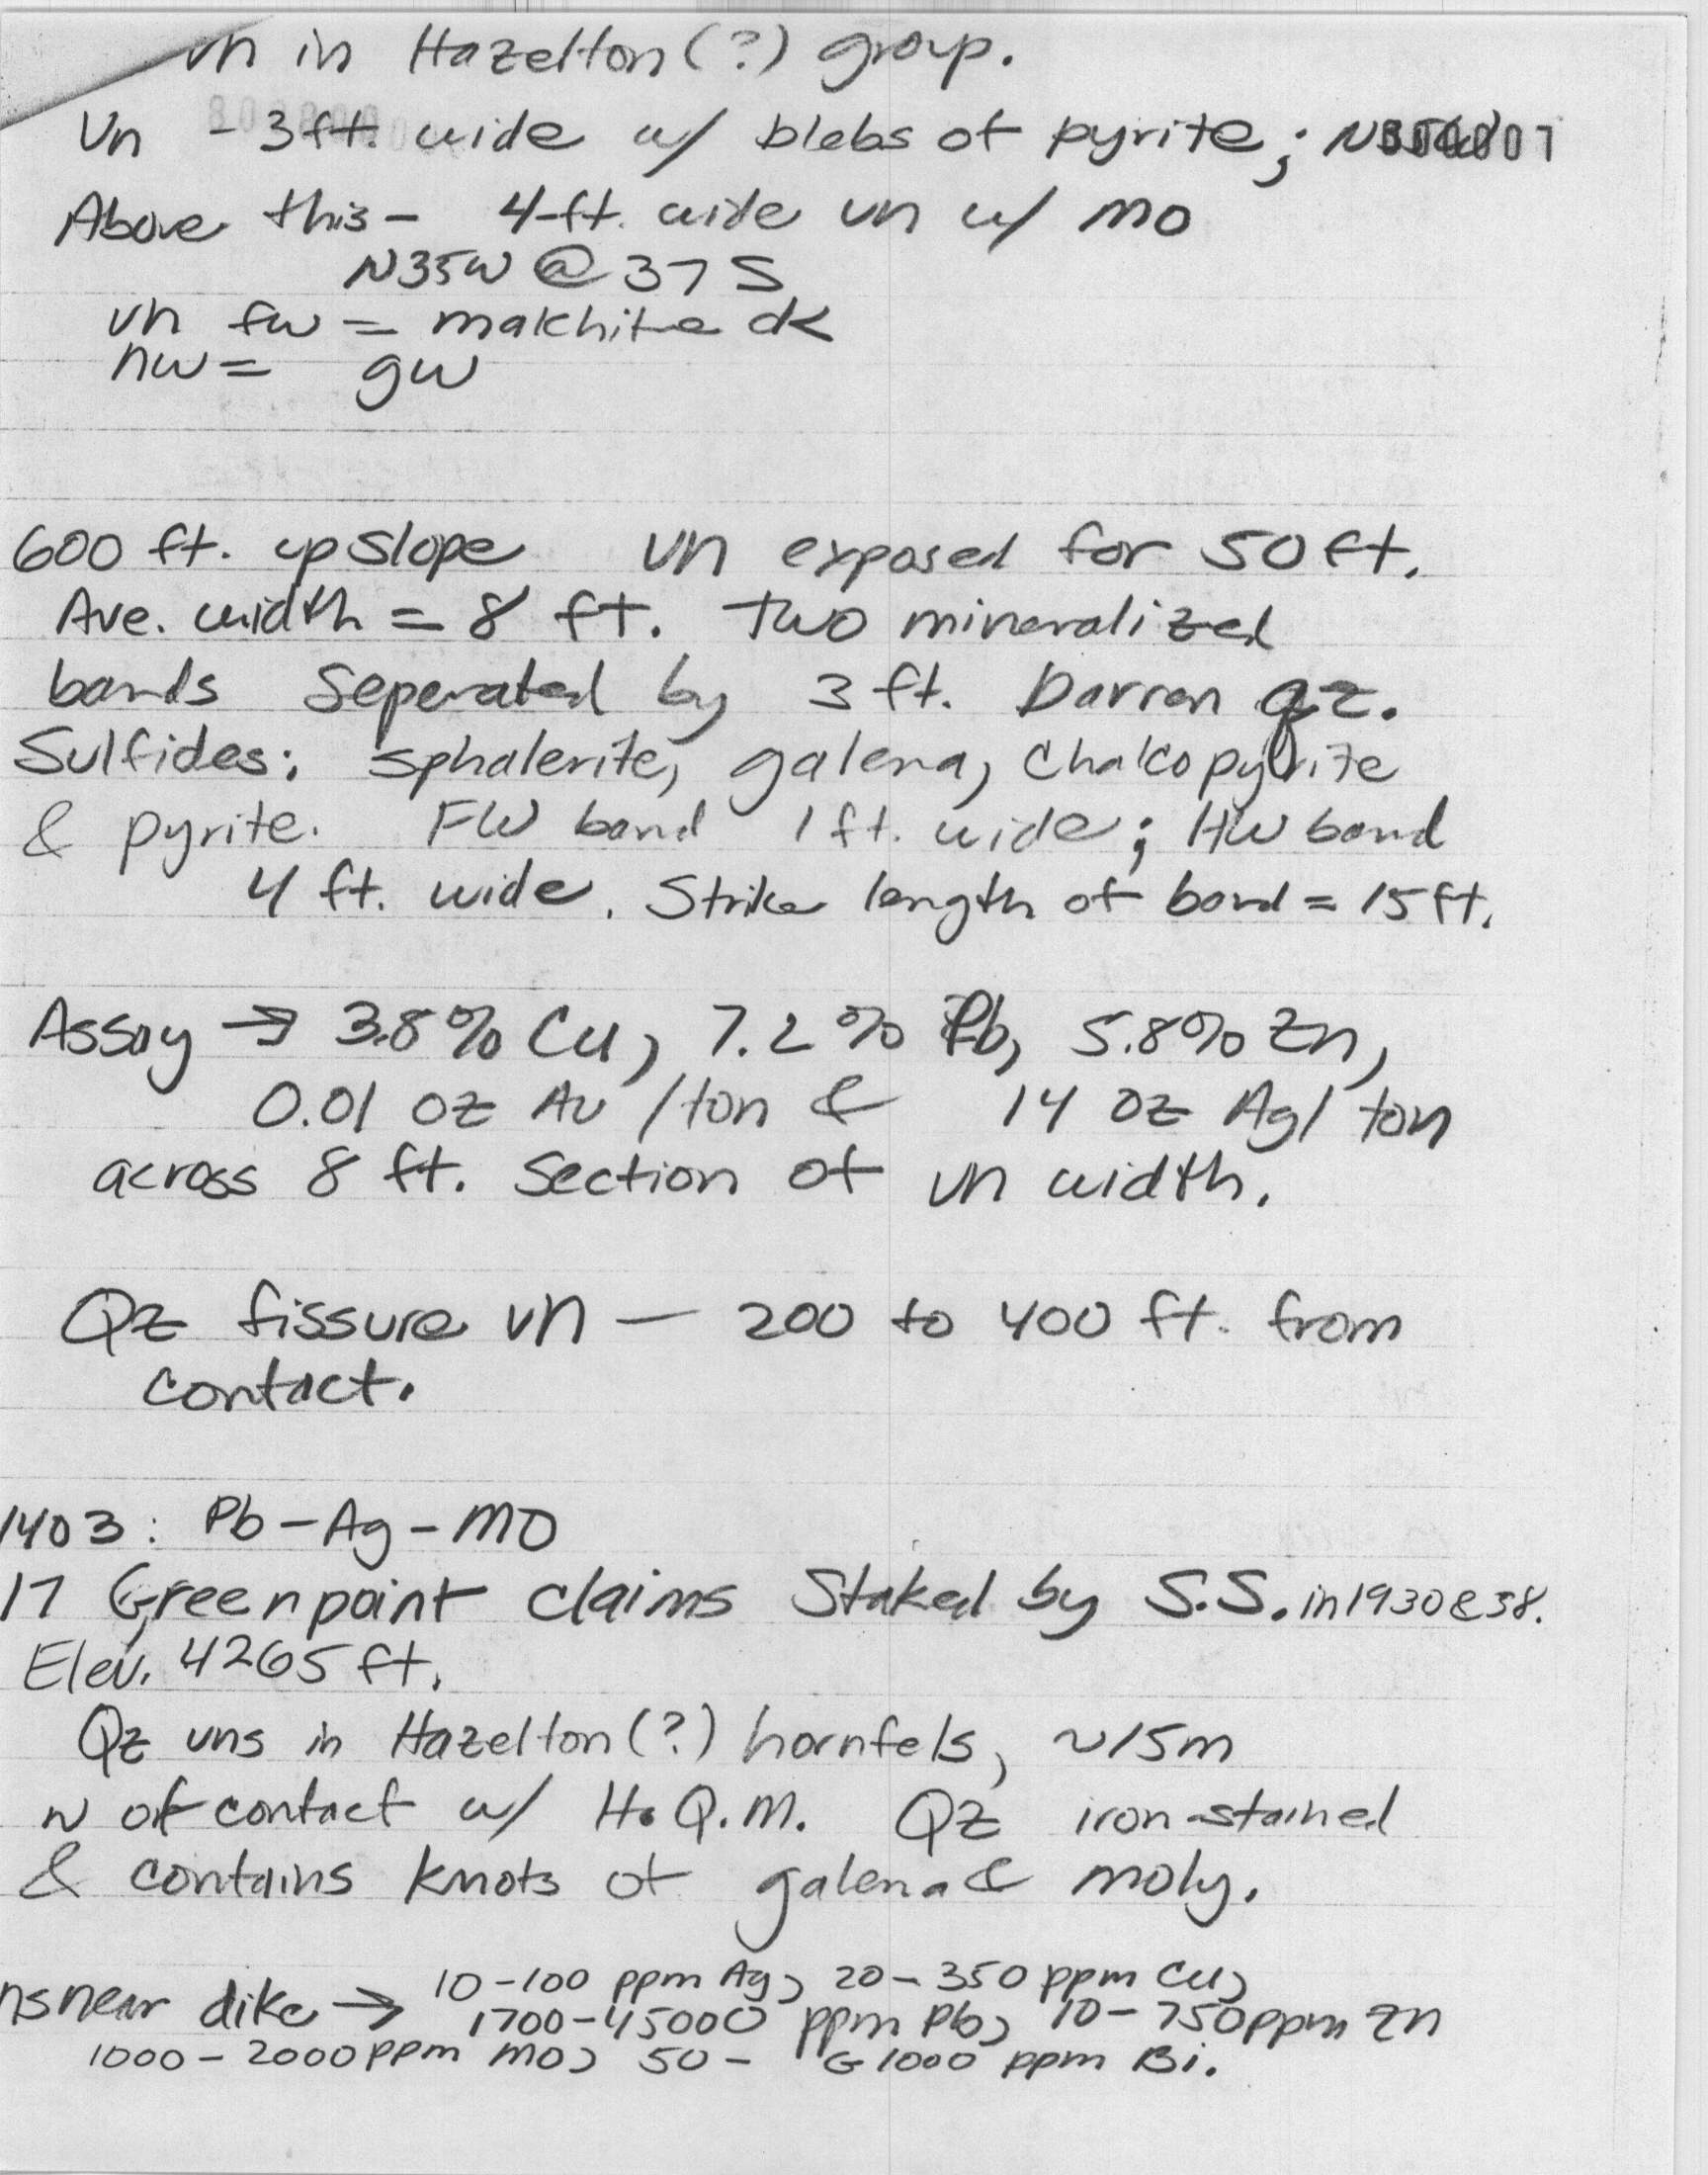 vn in Hazelton (?) group.
Vn - 3 ft. wide w/ blebs of pyrite;
Above this - 4-ft. wide vn w/ mo
N35W @ 37 S
vn fw = malchite dk
hw = gw
600 ft. upslope vn exposed for 50 ft.
Ave. width = 8 ft. Two mineralized
bands Seperated by 3 ft. Barren qz.
Sulfides: sphalerite, galena, chalcopyrite
& pyrite. FW band 1 ft. wide; HW band
4 ft. wide. Strike length of band = 15 ft.
Assay → 3.8% Cu, 7.2% Pb, 5.8% Zn,
0.01 oz Au / ton & 14 oz Ag/ ton
across 8 ft. Section of vn width.
Qz fissure vn — 200 to 400 ft. from
contact.
1403: Pb-Ag-MO
17 Greenpoint claims Staked by S.S. in 1930 & 38.
Elev. 4265 ft.
Qz vns in Hazelton (?) hornfels, ~15m
N of contact w/ H.Q.M. Qz iron-stained
& contains knots of galena & moly.
near dike → 10-100 ppm Ag, 20-350 ppm Cu,
1700-45000 ppm Pb, 10-750 ppm Zn
1000-2000 ppm MO, 50- G1000 ppm Bi.